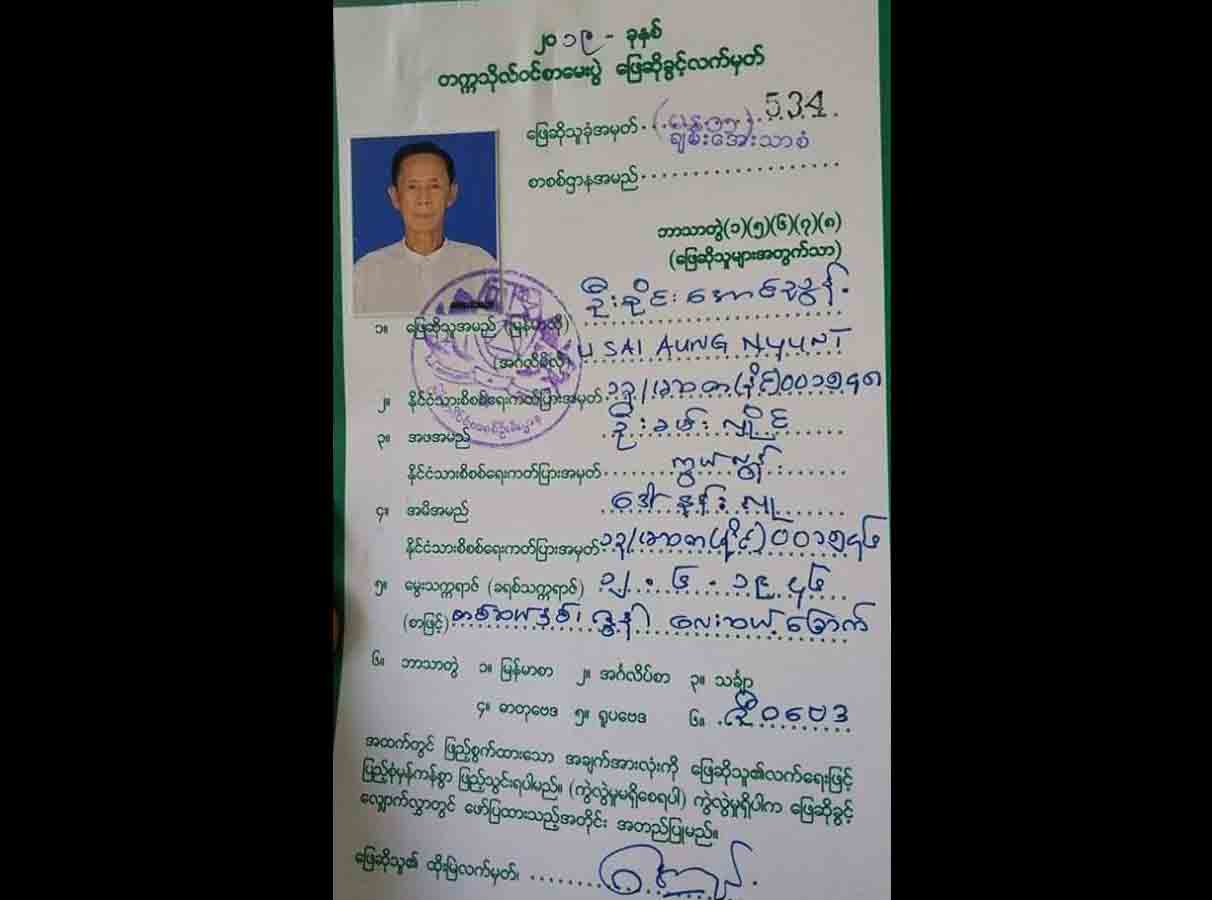 ၂၀၁၉ - ခုနှစ်
တက္ကသိုလ်ဝင်စာမေးပွဲ ဖြေဆိုခွင့်လက်မှတ်
ဖြေဆိုသူခုံအမှတ် 534
ချမ်းအေးသာစံ
စာစစ်ဌာနအမည်
ဘာသာတွဲ(၁)(၅)(၆)(၇)(၈)
(ဖြေဆိုသူများအတွက်သာ)
၁။ ဖြေဆိုသူအမည် (မြန်မာလို) ဦးစိုင်းအောင်ညွန့်
(အင်္ဂလိပ်လို) U SAI AUNG NYUNT
၂။ နိုင်ငံသားစိစစ်ရေးကတ်ပြားအမှတ်
၃။ အဖအမည် ဦးခမ်းလှိုင်
နိုင်ငံသားစိစစ်ရေးကတ်ပြားအမှတ် ကွယ်လွန်
၄။ အမိအမည် ဒေါ်နန်းလှ
နိုင်ငံသားစိစစ်ရေးကတ်ပြားအမှတ်
၅။ မွေးသက္ကရာဇ် (ခရစ်သက္ကရာဇ်) ၁၂.၆.၁၉၄၆
(စာဖြင့်) လေးဆယ့်ခြောက်
၆။ ဘာသာတွဲ ၁။ မြန်မာစာ ၂။ အင်္ဂလိပ်စာ ၃။ သင်္ချာ
၄။ ဓာတုဗေဒ ၅။ ရူပဗေဒ ၆။ ဇီဝဗေဒ
အထက်တွင် ဖြည့်စွက်ထားသော အချက်အားလုံးကို ဖြေဆိုသူ၏လက်ရေးဖြင့်
ပြည့်စုံမှန်ကန်စွာ ဖြည့်သွင်းရပါမည်။ (ကွဲလွဲမှုမရှိစေရပါ) ကွဲလွဲမှုရှိပါက ဖြေဆိုခွင့်
လျှောက်လွှာတွင် ဖော်ပြထားသည့်အတိုင်း အတည်ပြုမည်။
ဖြေဆိုသူ၏ ထိုးမြဲလက်မှတ်၊